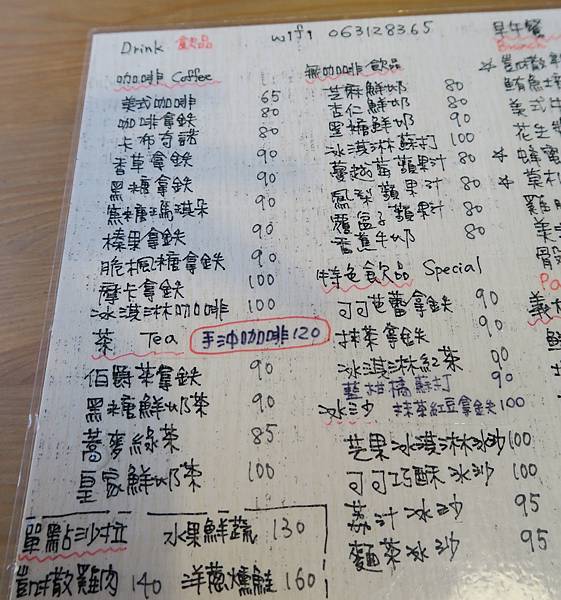 Drink 飲品
wifi 063128365
咖啡 Coffee
美式咖啡 65
咖啡拿鉄 80
卡布奇諾 80
香草拿鉄 90
黑糖拿鉄 90
焦糖瑪淇朵 90
榛果拿鉄 90
脆楓糖拿鉄 90
摩卡拿鉄 100
冰淇淋咖啡 100
茶 Tea 手沖咖啡120
伯爵茶拿鉄 90
黑糖鮮奶茶 90
蕎麥綠茶 85
皇家鮮奶茶 100
單點沙拉 水果鮮蔬 130
凱撒雞肉 140 洋蔥燻鮭 160
無咖啡飲品
芝麻鮮奶 80
杏仁鮮奶 80
黑糖鮮奶 90
冰淇淋蘇打 100
蔓越莓蘋果汁 80
鳳梨蘋果汁 80
覆盆子蘋果汁 80
香蕉牛奶 80
特色飲品 Special
可可芭蕾拿鉄 90
抹茶拿鉄 90
冰淇淋紅茶 90
藍柑橘蘇打 90
冰沙 抹茶紅豆拿鉄100
芒果冰淇淋冰沙100
可可巧酥冰沙 100
荔汁冰沙 95
麵茶冰沙 95
早午餐
Brunch